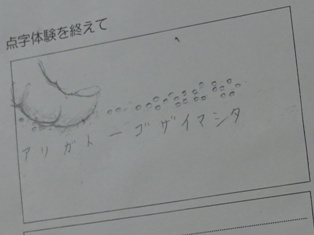 点字体験を終えて
アリガトーゴザイマシタ